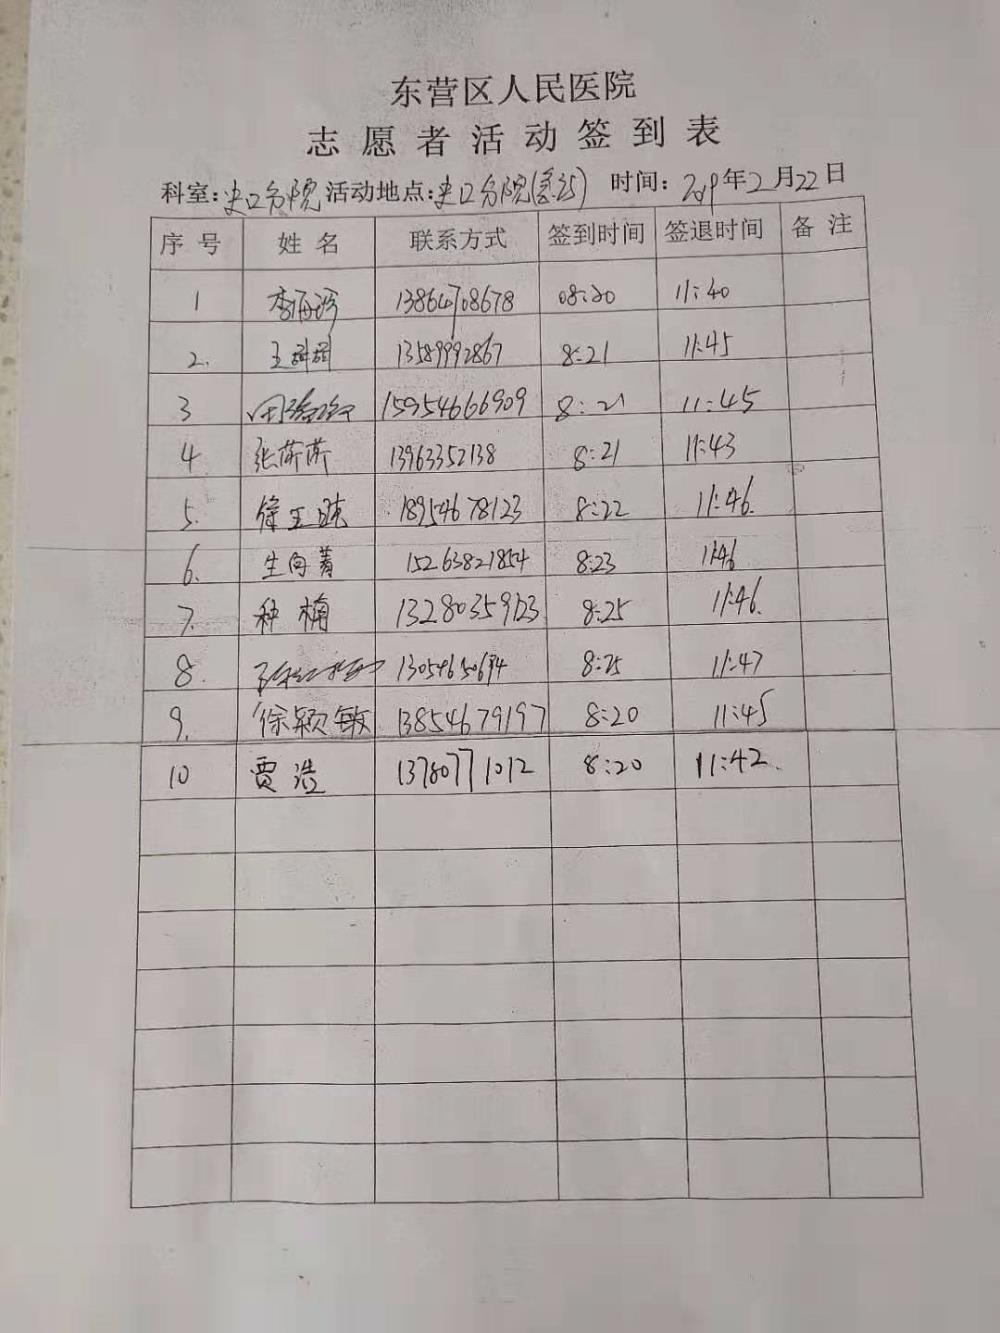 东营区人民医院
志愿者活动签到表
科室:史口分院 活动地点:史口分院 时间: 2019年2月22日
序号 姓名 联系方式 签到时间 签退时间 备注
1 李再珍 13864708678 08:20 11:40
2. 王 13589992867 8:21 11:45
3 田 15954666909 8:21 11:45
4 张荣荣 13963352138 8:21 11:43
5. 徐玉 18954678123 8:22 11:46.
6. 生向菁 15263821854 8:23 11:46
7. 种楠 13280359123 8:25 11:46.
8. 8:25 11:47
9. 徐颖敏 13854679197 8:20 11:45
10 贾浩 13780771012 8:20 11:42.